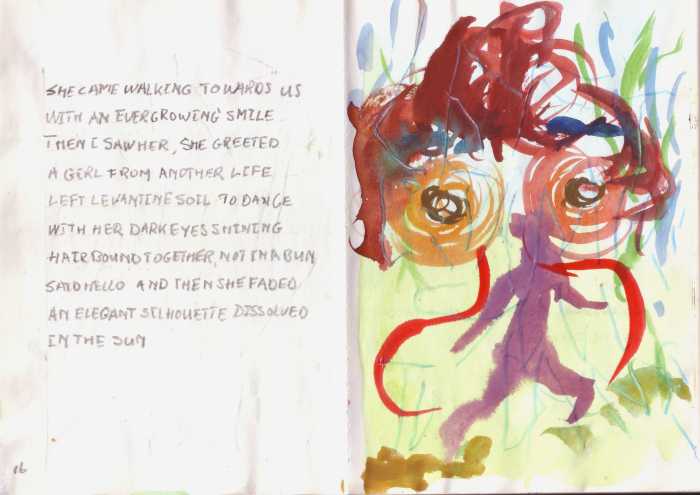 SHE CAME WALKING TOWARDS US
WITH AN EVERGROWING SMILE
THEN I SAW HER, SHE GREETED
A GIRL FROM ANOTHER LIFE
LEFT LEVANTINE SOIL TO DANCE
WITH HER DARK EYES SHINING
HAIR BOUND TOGETHER, NOT IN A BUN
SAID HELLO AND THEN SHE FADED
AN ELEGANT SILHOUETTE DISSOLVED
IN THE SUN
16